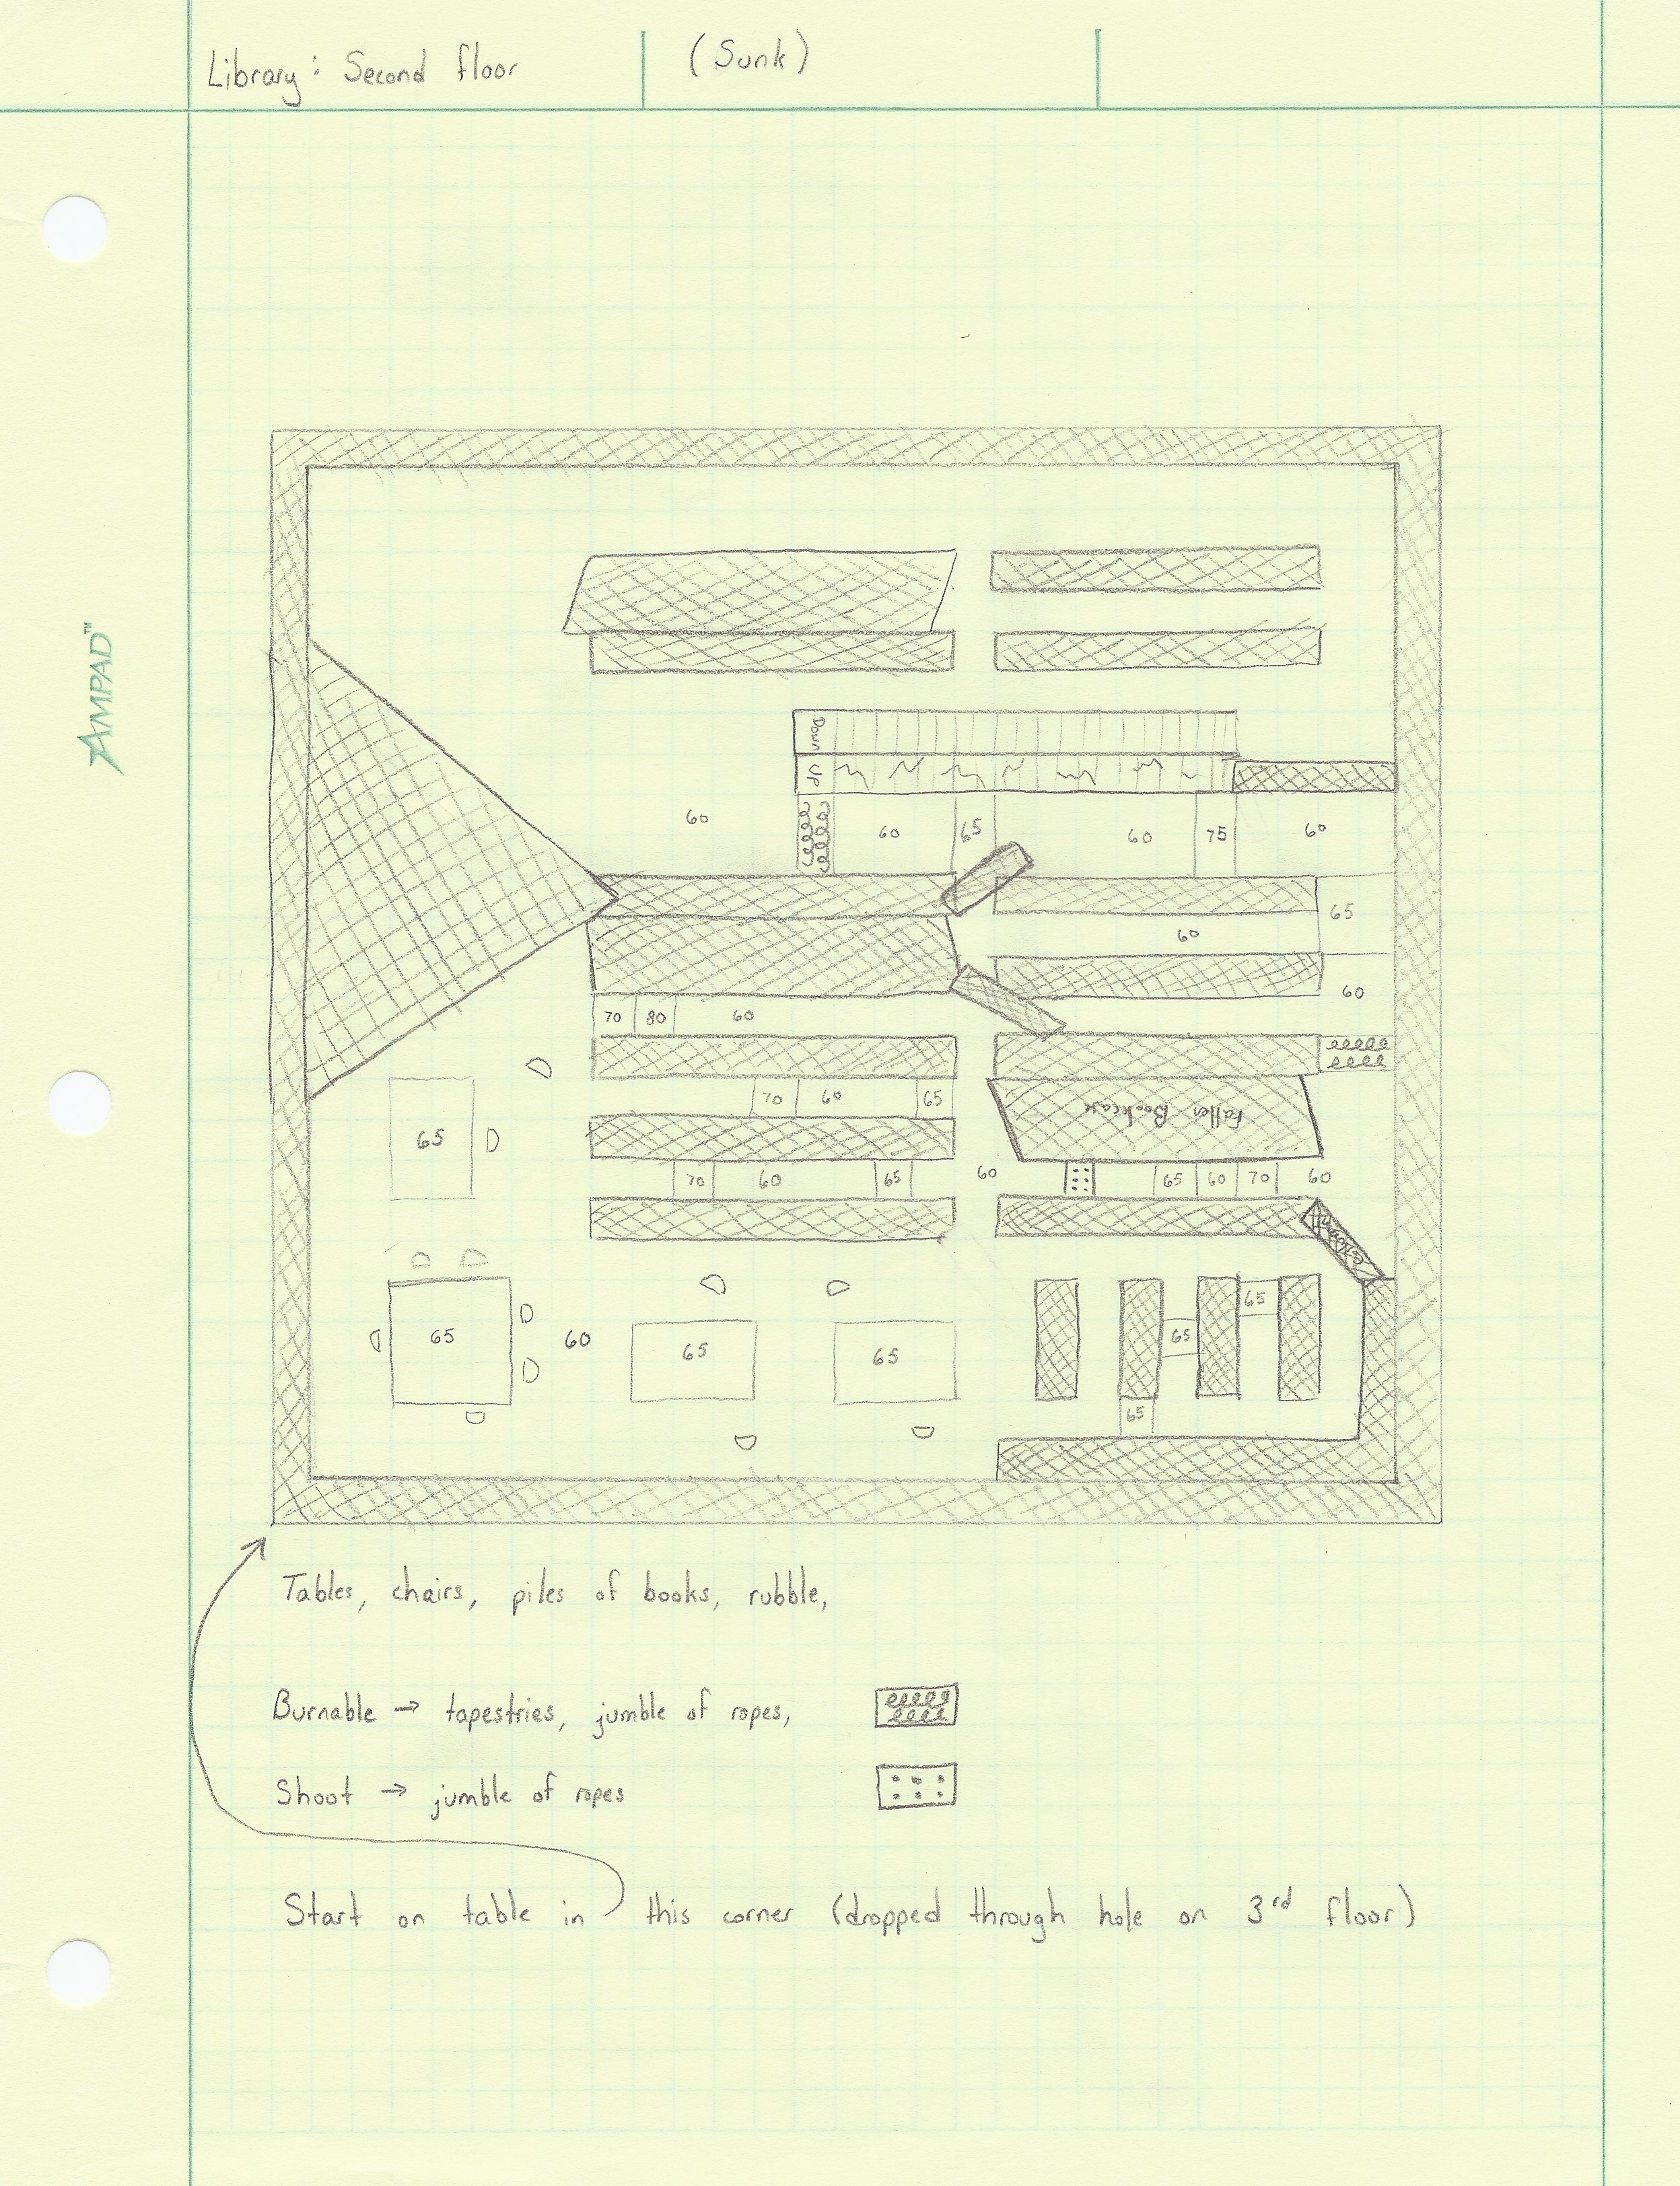 Library: Second floor
(Sunk)
AMPAD™
Down
UP
60
60
65
60
75
60
65
60
60
70
80
60
70
60
65
Fallen Bookcase
65
70
60
65
60
65
60
70
60
65
60
65
65
65
65
65
Tables, chairs, piles of books, rubble,
Burnable → tapestries, jumble of ropes,
Shoot → jumble of ropes
Start on table in this corner (dropped through hole on 3rd floor)